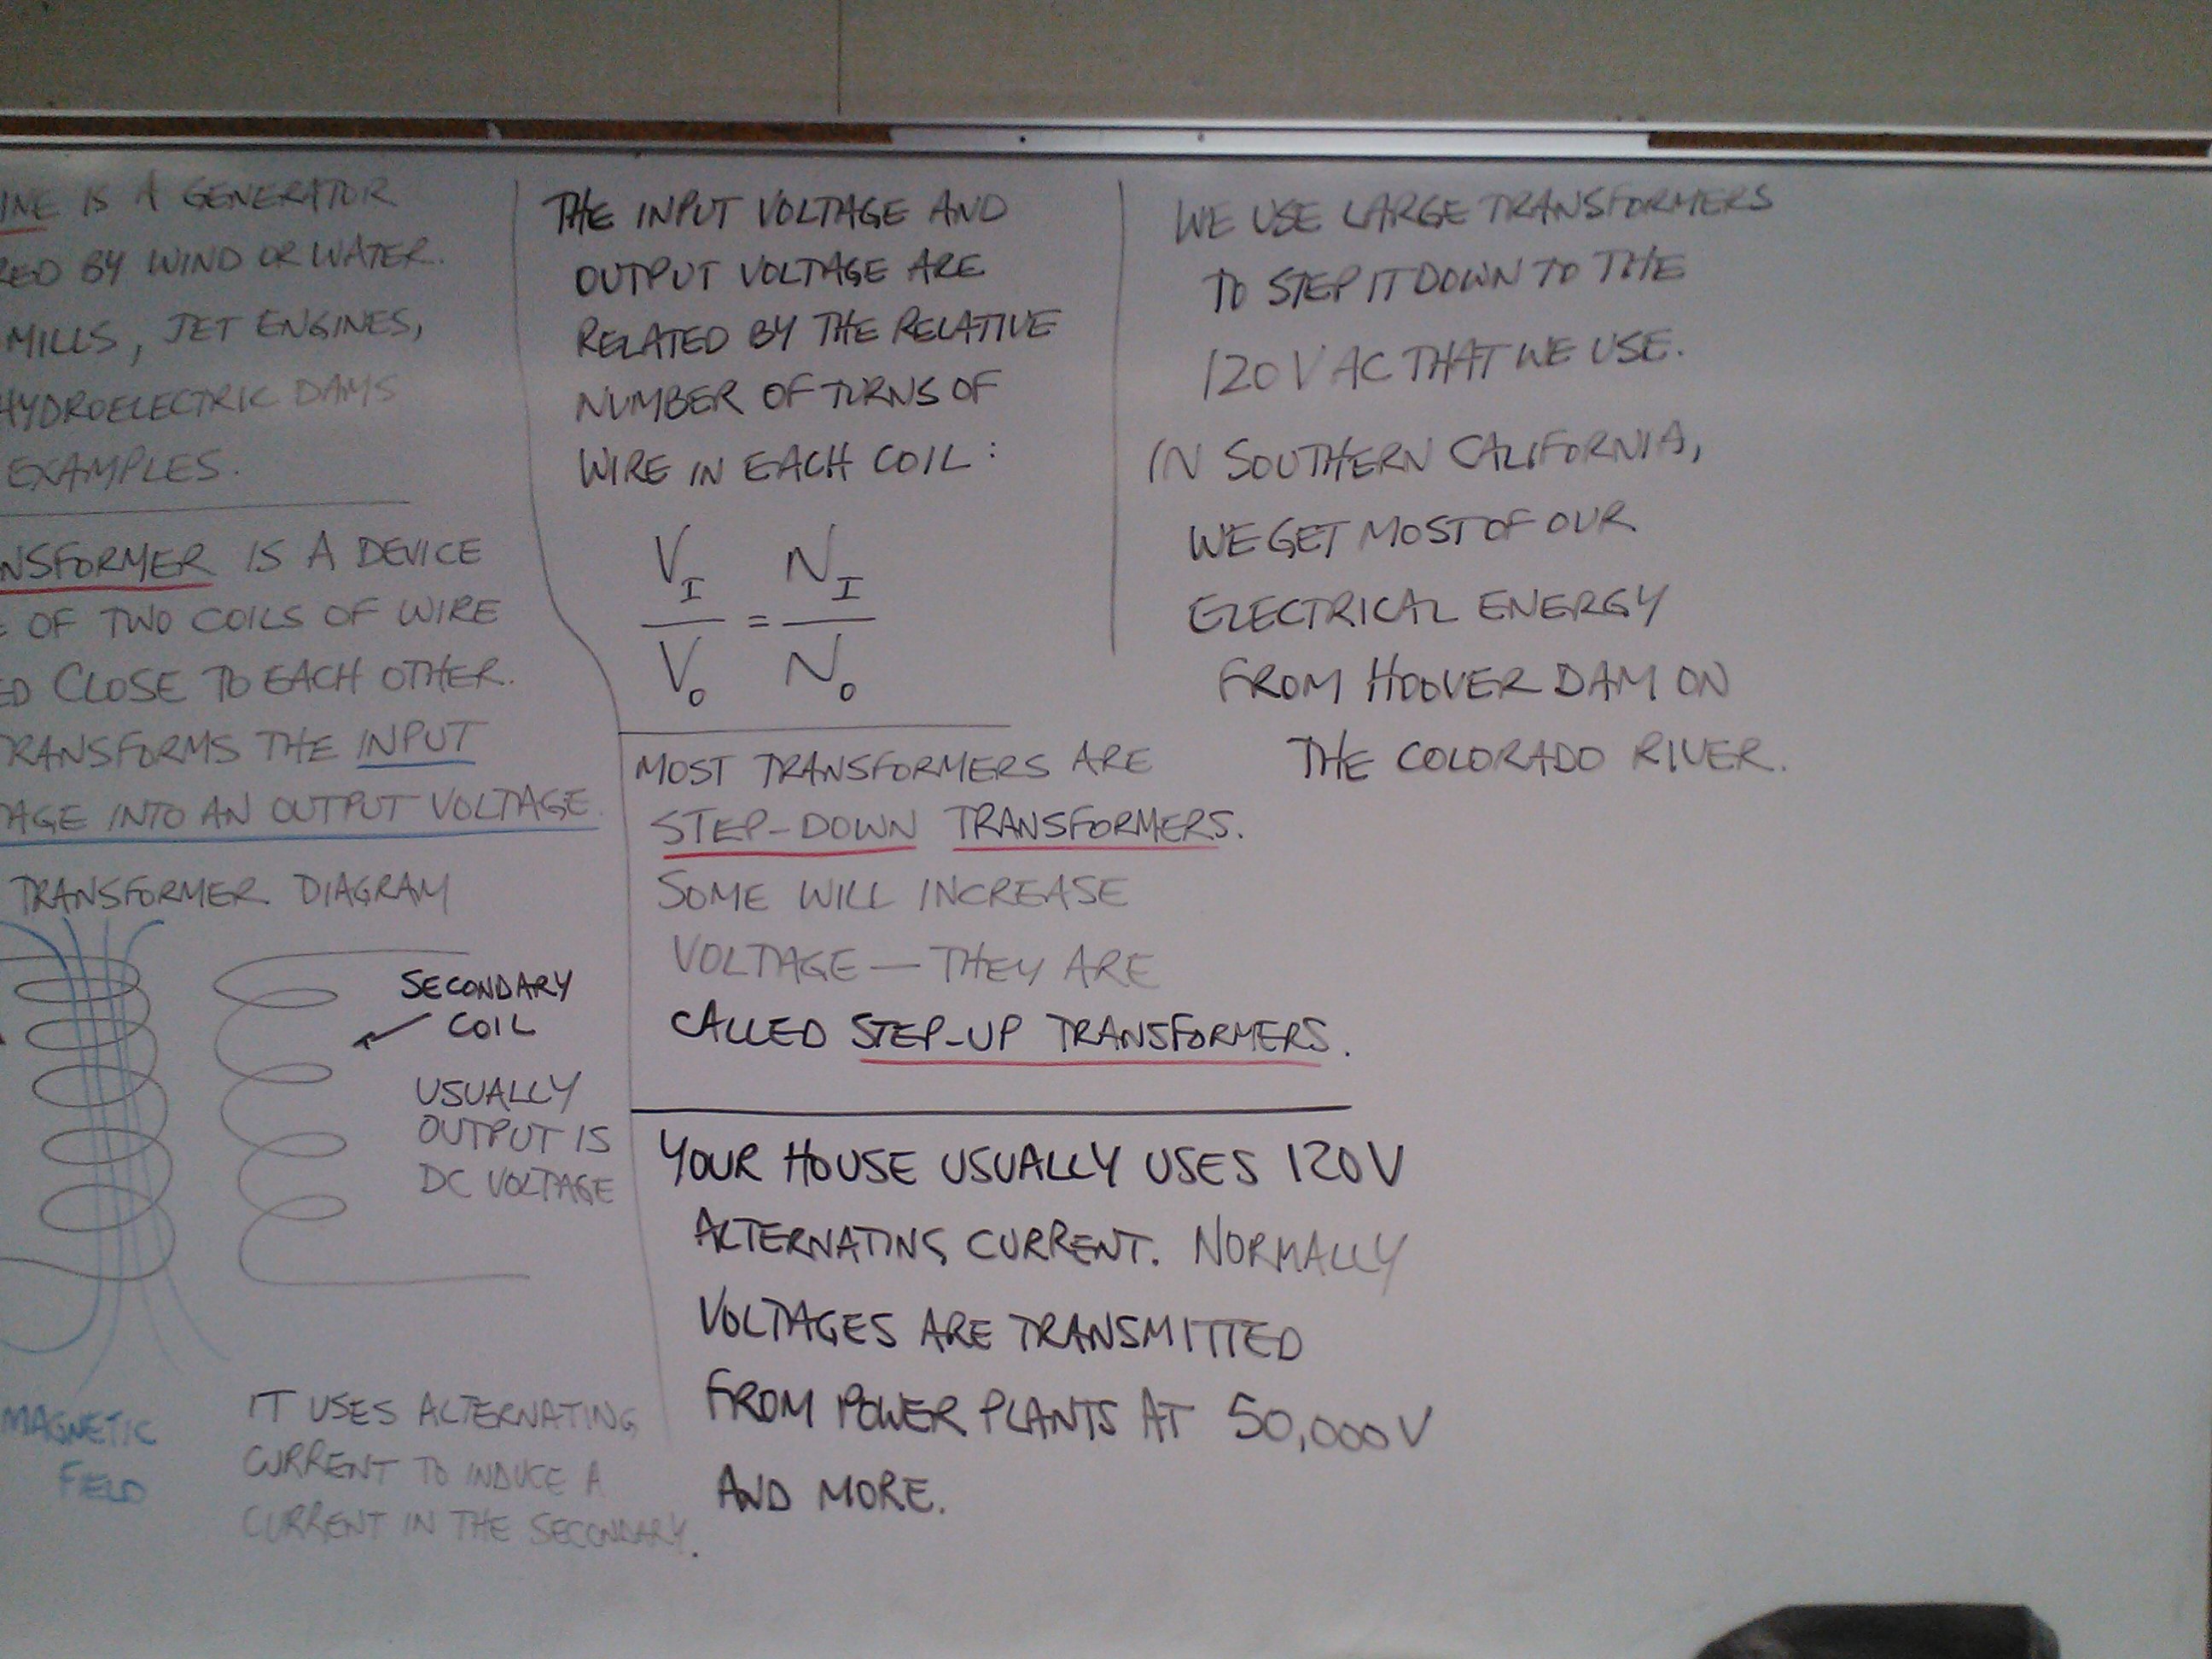 INE IS A GENERATOR
RED BY WIND OR WATER.
MILLS, JET ENGINES,
HYDROELECTRIC DAMS
EXAMPLES.
NSFORMER IS A DEVICE
E OF TWO COILS OF WIRE
ED CLOSE TO EACH OTHER.
TRANSFORMS THE INPUT
TAGE INTO AN OUTPUT VOLTAGE.
TRANSFORMER DIAGRAM
SECONDARY
COIL
USUALLY
OUTPUT IS
DC VOLTAGE
MAGNETIC
FIELD
IT USES ALTERNATING
CURRENT TO INDUCE A
CURRENT IN THE SECONDARY.
THE INPUT VOLTAGE AND
OUTPUT VOLTAGE ARE
RELATED BY THE RELATIVE
NUMBER OF TURNS OF
WIRE IN EACH COIL:
V_I N_I
=
V_O N_O
MOST TRANSFORMERS ARE
STEP-DOWN TRANSFORMERS.
SOME WILL INCREASE
VOLTAGE — THEY ARE
CALLED STEP-UP TRANSFORMERS.
YOUR HOUSE USUALLY USES 120V
ALTERNATING CURRENT. NORMALLY
VOLTAGES ARE TRANSMITTED
FROM POWER PLANTS AT 50,000V
AND MORE.
WE USE LARGE TRANSFORMERS
TO STEP IT DOWN TO THE
120 V AC THAT WE USE.
IN SOUTHERN CALIFORNIA,
WE GET MOST OF OUR
ELECTRICAL ENERGY
FROM HOOVER DAM ON
THE COLORADO RIVER.